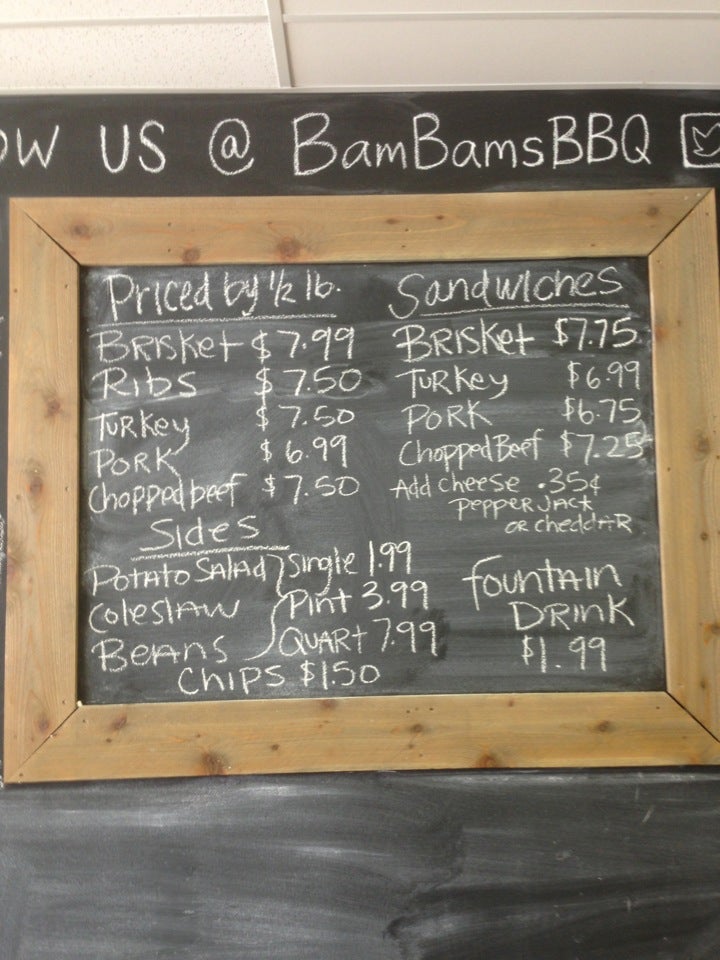 OW US @ BamBamsBBQ
Priced by 1/2 lb.
Brisket $7.99
Ribs $7.50
Turkey $7.50
Pork $6.99
Chopped beef $7.50
Sides
Potato Salad Single 1.99
Coleslaw Pint 3.99
Beans Quart 7.99
Chips $1.50
Sandwiches
Brisket $7.75
Turkey $6.99
Pork $6.75
Chopped Beef $7.25
Add cheese .35¢
pepper jack
or cheddar
Fountain
Drink
$1.99